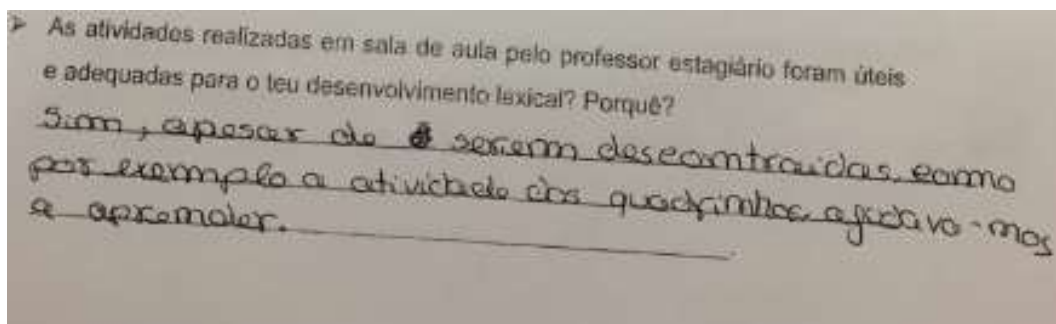 ➤ As atividades realizadas em sala de aula pelo professor estagiário foram úteis
e adequadas para o teu desenvolvimento lexical? Porquê?
Sim, apesar de serem descontraídas, como
por exemplo a atividade dos quadrinhos, ajudava-nos
a aprender.